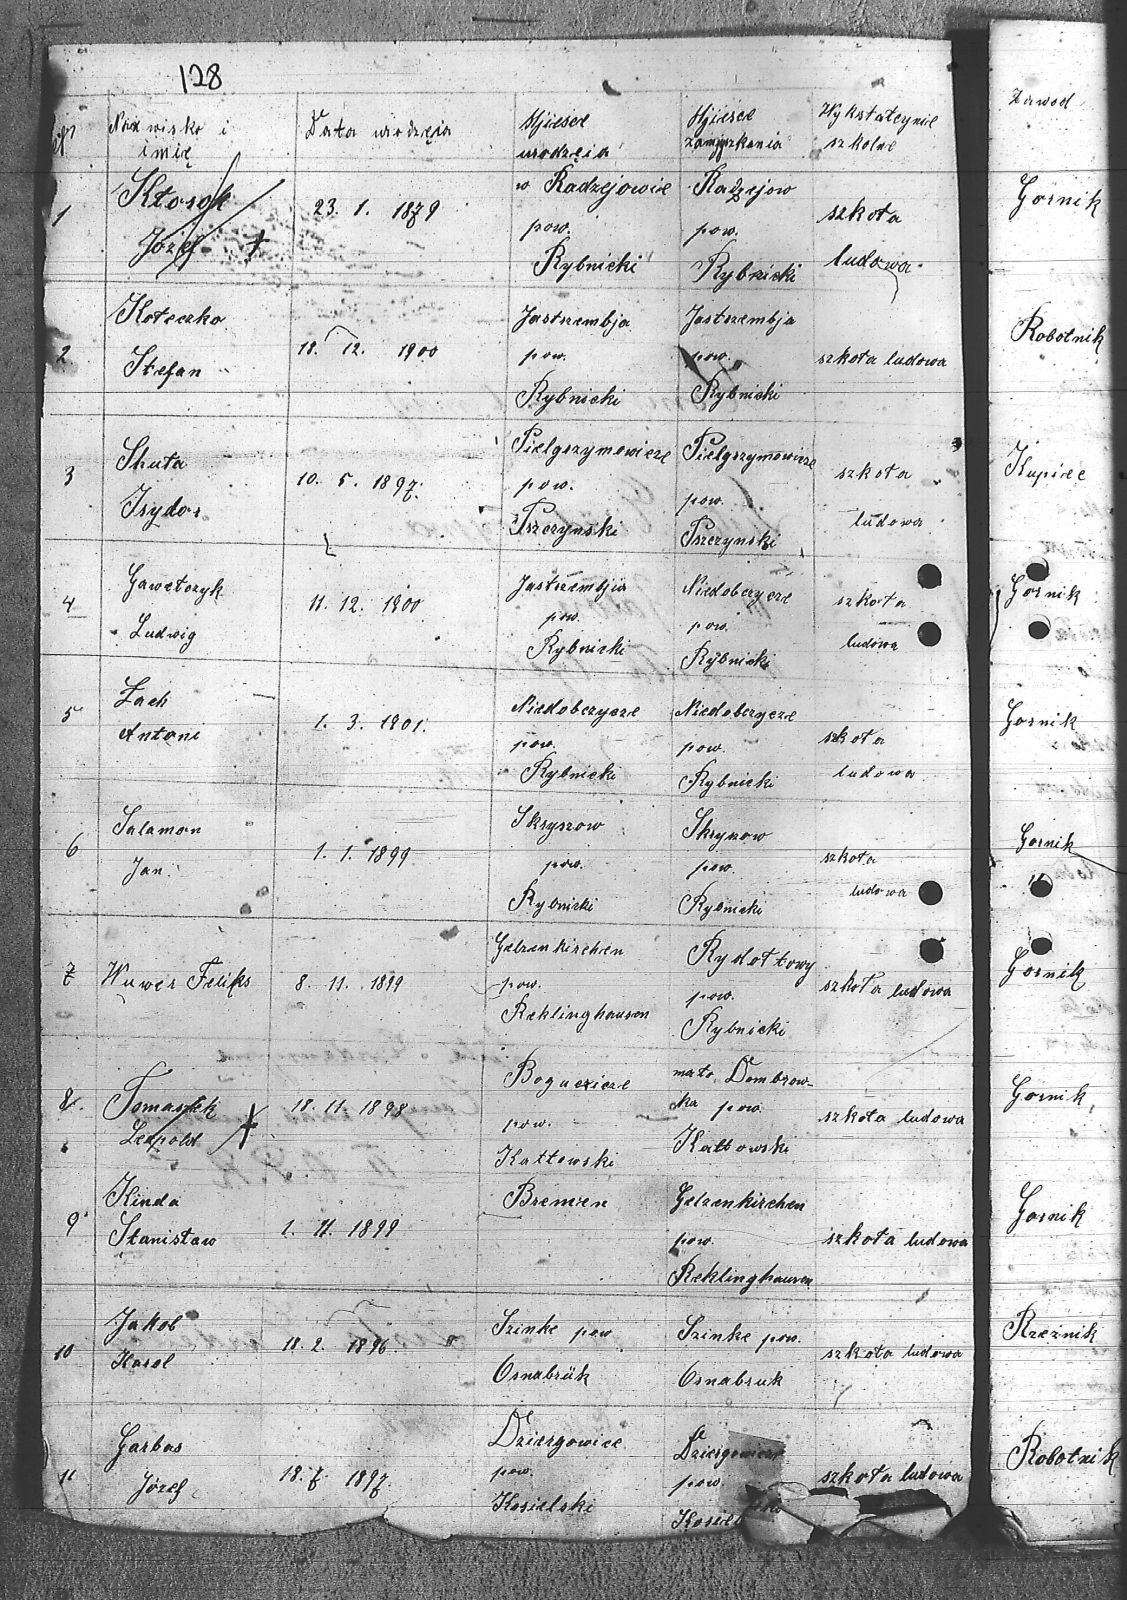 128
Nazwisko i
imię
Data urodzęia
Mjiesce
urodzęia
Mjiesce
zamjyszkania
Wykstałcynie
szkolne
Zawod
1
Kłosok
Józef
23. 1. 1879
w Radzejowie
pow.
Rybnicki
Radzejow
pow.
Rybnicki
szkoła
ludowa
Gornik
2
Koteczko
Stefan
18. 12. 1900
Jastrzembja
pow.
Rybnicki
Jastrzembja
pow.
Rybnicki
szkoła ludowa
Robotnik
3
Skuta
Isydor
10. 5. 1897.
Pielgrzymowicze
pow.
Pszczynski
Pielgrzymowicze
pow.
Pszczynski
szkoła
ludowa
Kupiec
4
Gawełczyk
Ludwig
11. 12. 1900
Jastrzembjia
pow.
Rybnicki
Niedobczyce
pow.
Rybnicki
szkoła
ludowa
Gornik
5
Zach
Antoni
1. 3. 1901.
Niedobczycze
pow.
Rybnicki
Niedobczycze
pow.
Rybnicki
szkoła
ludowa
Gornik
6
Salamon
Jan
1. 1. 1899
Skryszow
pow.
Rybnicki
Skrynow
pow.
Rybnicki
szkoła
ludowa
Gornik
7
Wuwer Feliks
8. 11. 1899
Gelzenkirchen
pow.
Reklinghausen
Rydołtowy
pow.
Rybnicki
szkoła ludowa
Gornik
8.
Tomaszek
Leopold
18. 11. 1898
Boguczicze
pow.
Kattowski
mało Dombrow-
ka pow.
Kattowski
szkoła ludowa
Gornik
9
Kinda
Stanisław
1. 11. 1899
Bremen
Gelzenkirchen
pow.
Reklinghausen
szkoła ludowa
Gornik
10
Jakob
Karol
18. 2. 1896
Szinke pow
Osnabrük
Szinke pow.
Osnabruk
szkoła ludowa
Rzeźnik
11
Garbas
Józef
18. 7. 1897.
Dziergowice
pow.
Kosielski
Dziergowicze
pow.
szkoła ludowa
Robotnik